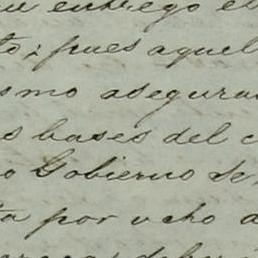 entrego es
to; pues aquel
smo asegura
s bases del c
o Gobierno de
ta por ocho a